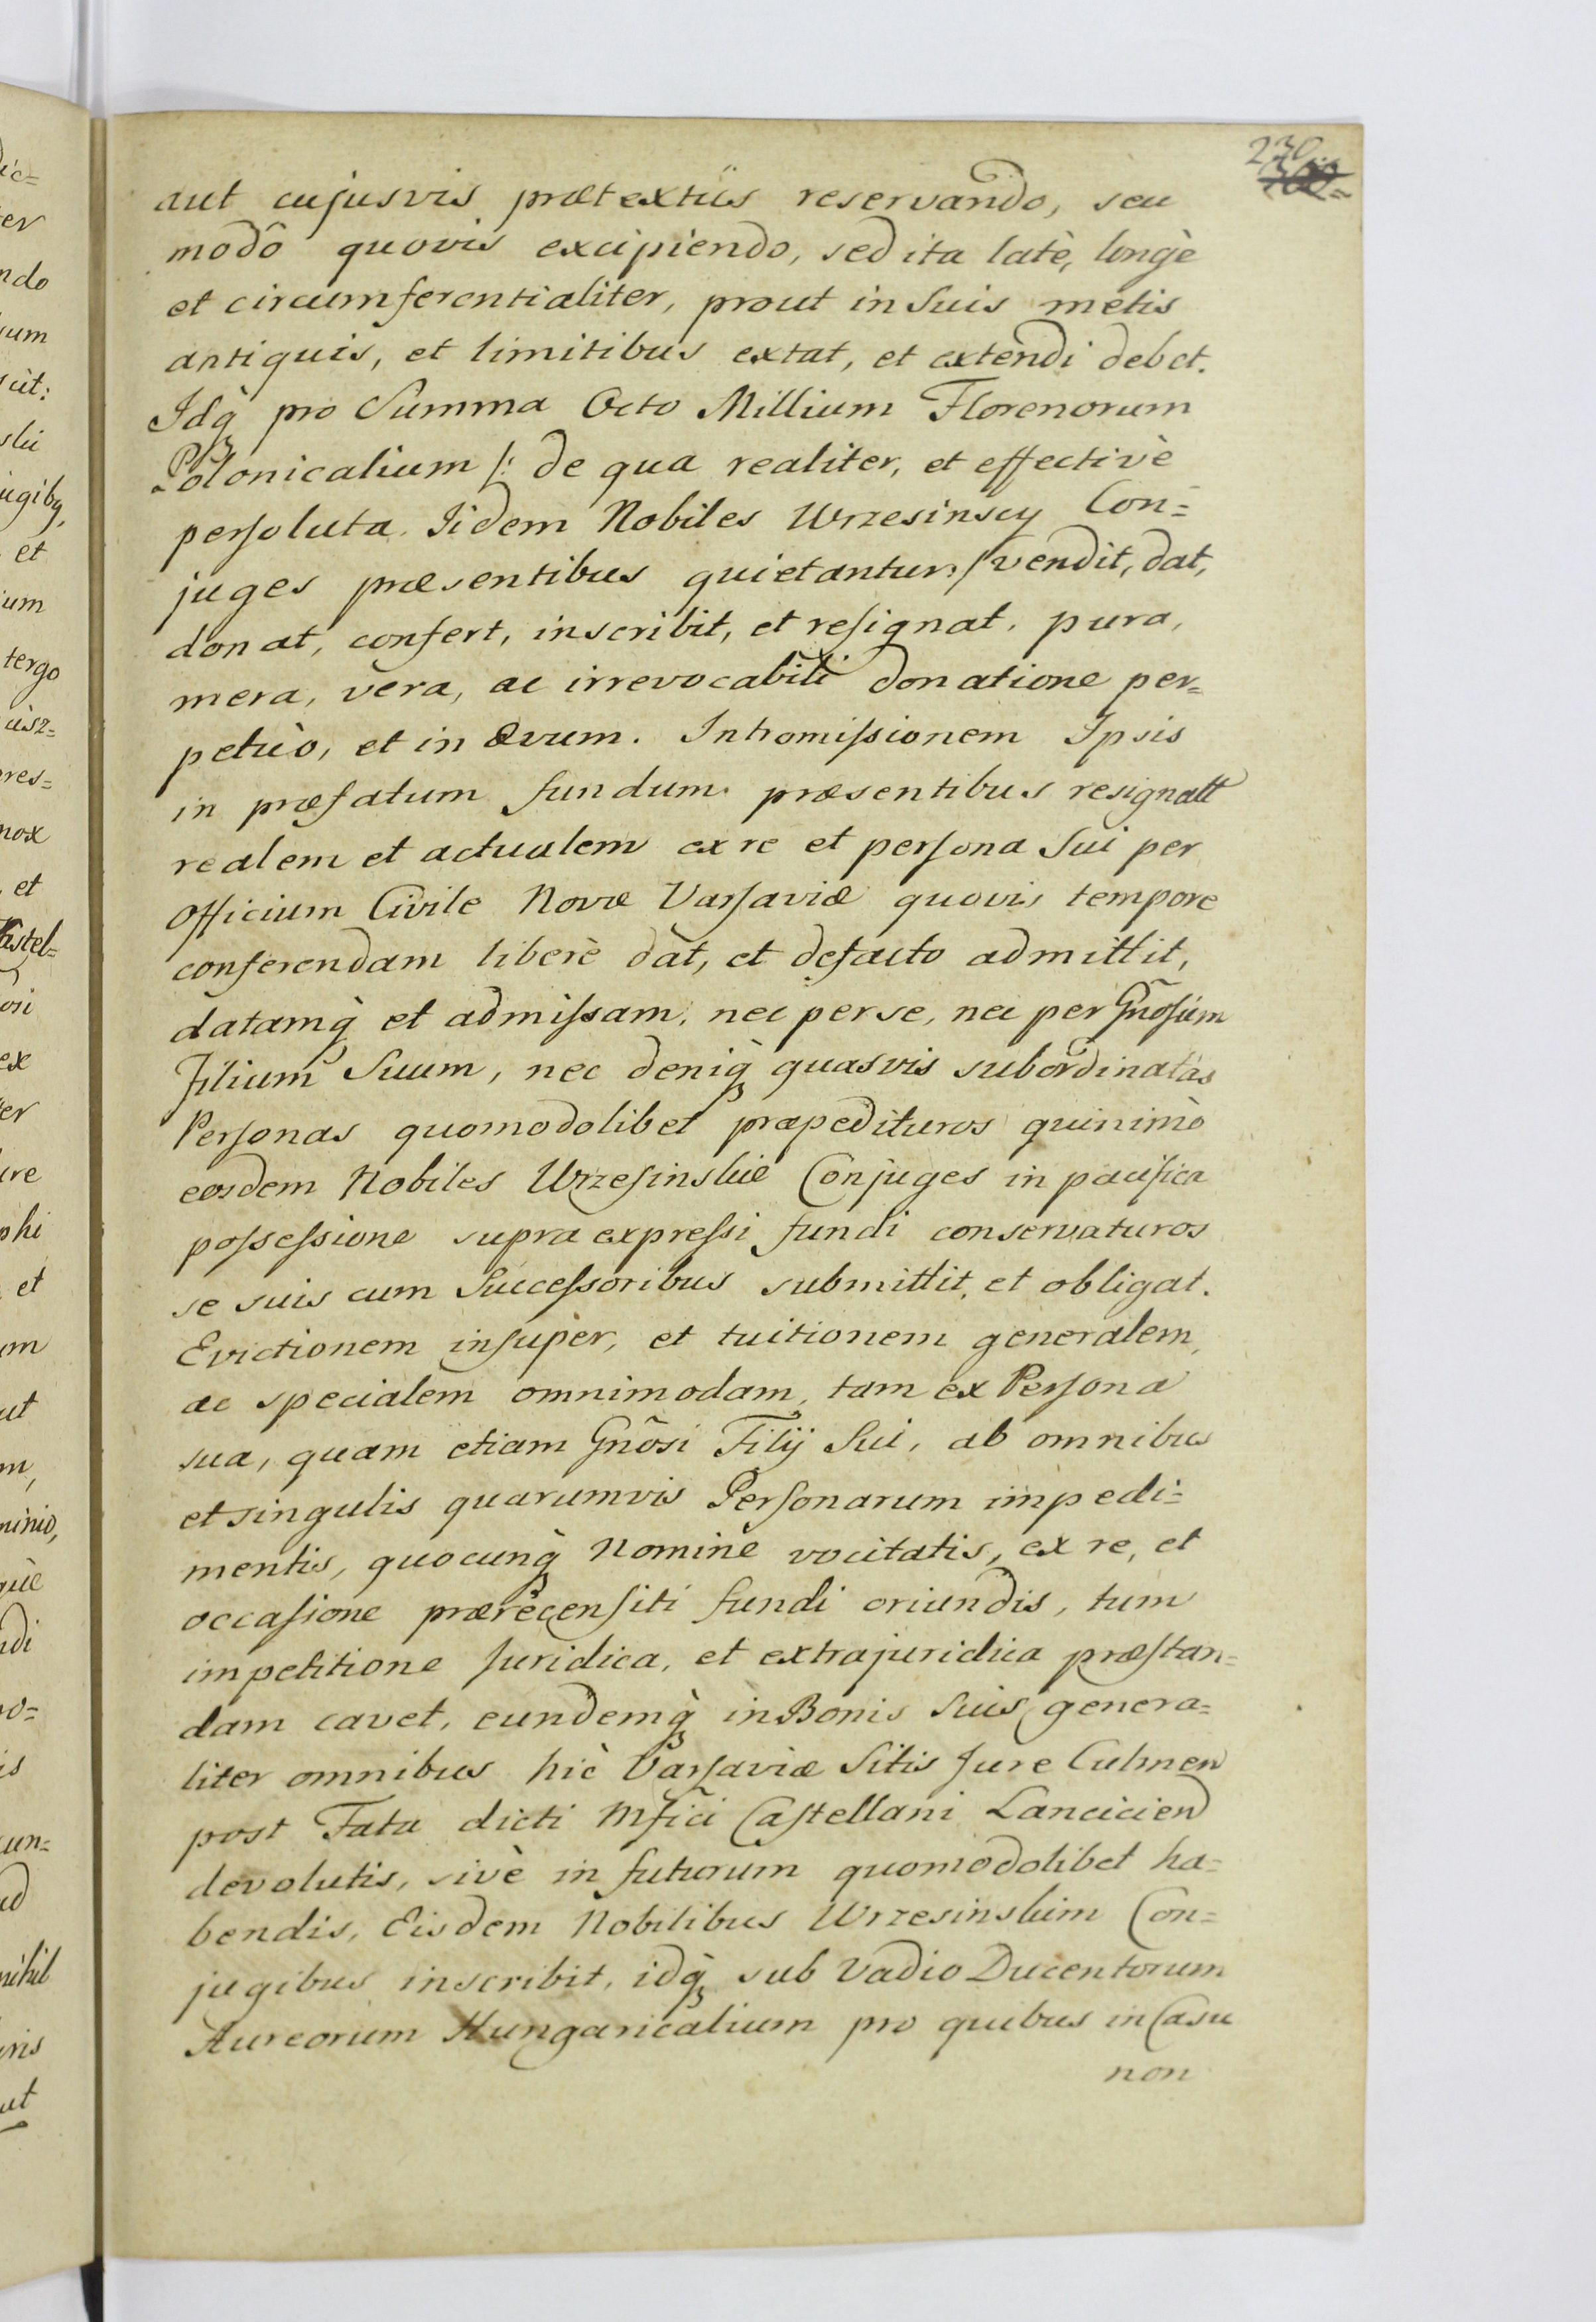 230
aut cujusvis prætextûs reservando, seu
modô quovis excipiendo, sed ita latè, longè
et circumferentialiter, prout in Suis metis
antiquis, et limitibus extat, et extendi debet.
Idq̀ pro Summa Octo Millium Florenorum
Polonicalium /: de qua realiter, et effectivè
persoluta Iidem Nobiles Wrzesinscy Con=
juges præsentibus quietantur :/ vendit, dat,
donat, confert, inscribit, et resignat, pura,
mera, vera, ac irrevocabili donatione per=
petuò, et in Ævum. Intromissionem Ipsis
in præfatum fundum præsentibus resignatt
realem et actualem ex re et persona Sui per
Officium Civile Novæ Varsaviæ quovis tempore
conferendam liberè dat, et defacto admittit,
datamq̀ et admissam, nec per se, nec per Gñosum
Filium Suum, nec deniq̀ quasvis subordinatas
Personas quomodolibet præpedituros quinimò
eosdem Nobiles Wrzesinskie Conjuges in pacifica
possessione supra expressi fundi conservaturos
se suis cum Successoribus submittit, et obligat.
Evictionem insuper, et tuitionem generalem,
ac specialem omnimodam, tam ex Persona
sua, quam etiam Gñosi Filij Sui, ab omnibus
et singulis quarumvis Personarum impedi=
mentis, quocunq̀ Nomine vocitatis, ex re, et
occasione prærecensiti fundi oriundis, tum
impetitione Juridica, et extrajuridica præstan=
dam cavet, eundemq̀ in Bonis Suis genera=
liter omnibus hic Varsaviæ Sitis Jure Culmen
post Fata dicti Mfici Castellani Lancicien
devolutis, sivè in futurum quomodolibet ha=
bendis, Eisdem Nobilibus Wrzesinskim Con=
jugibus inscribit, idq̀ sub Vadio Ducentorum
Aureorum Hungaricalium pro quibus in Casu
non